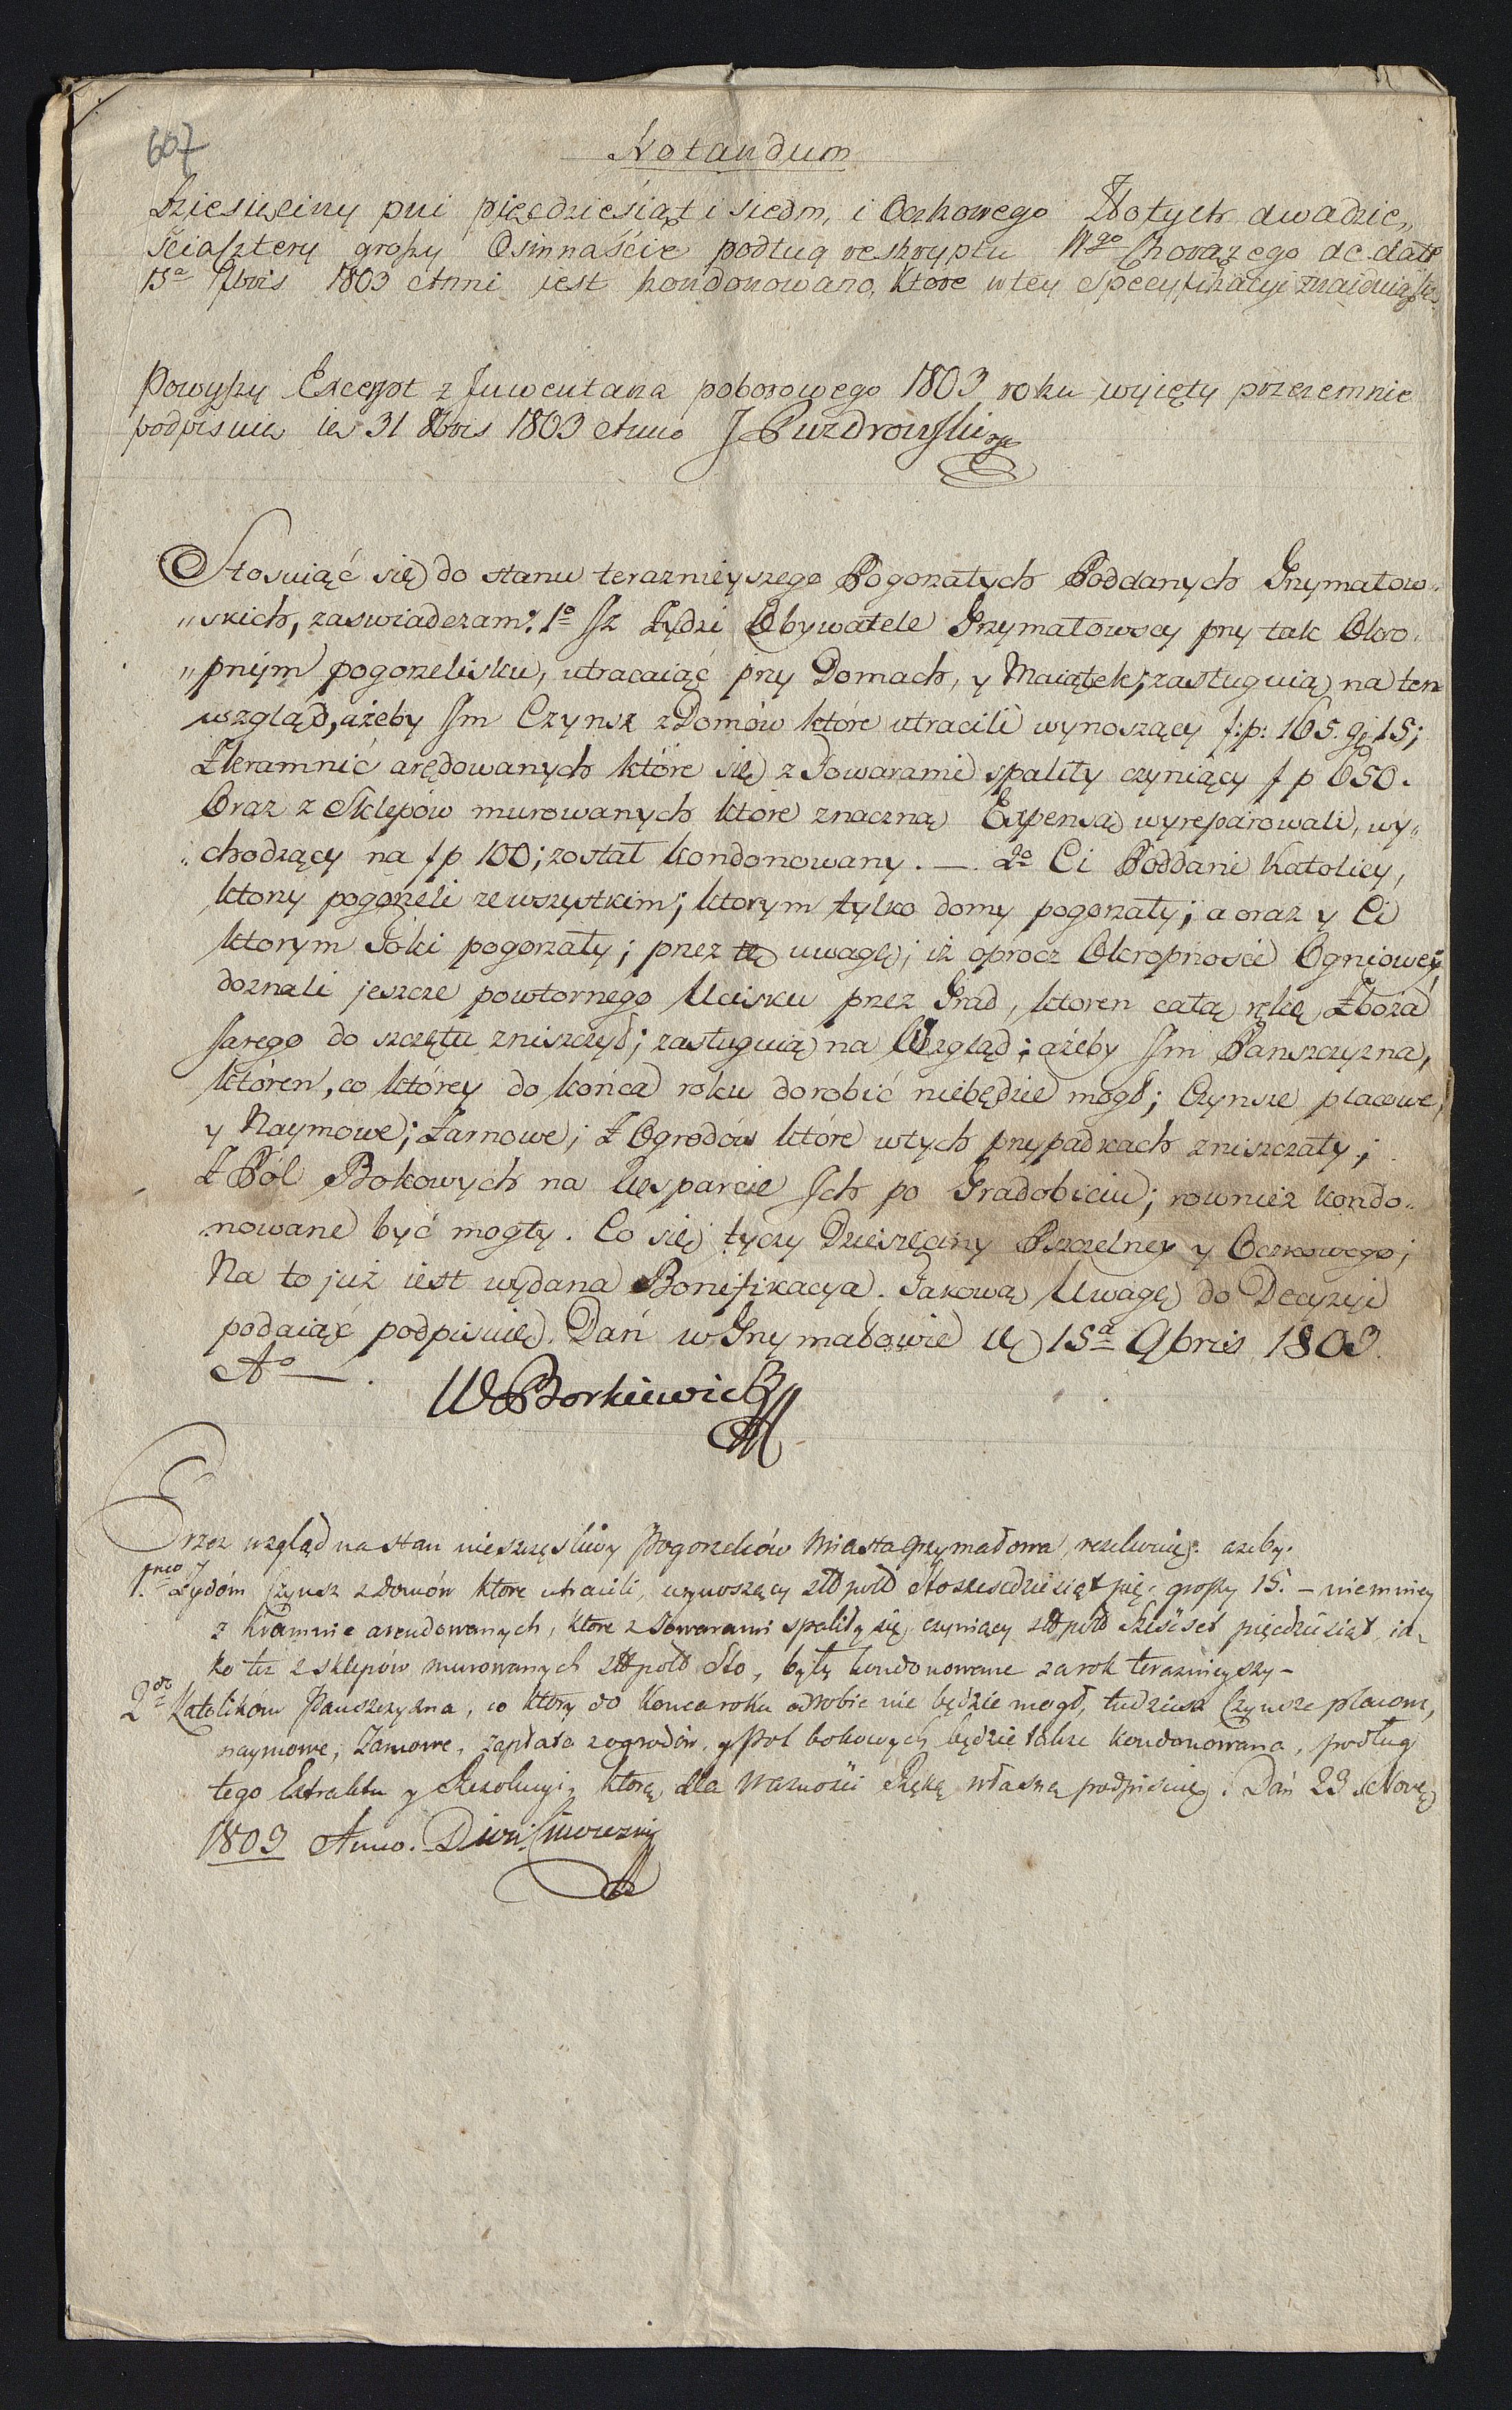 607
Notandum
Dziesięciny pni pięcdziesiąt i siedm, i Oczkowego Złotych dwadzie„
ściasztery groszy Osimnaście podług reskryptu Wgo Chorążego de dato
15a 9bris 1803 Anni jest kondonowano, które w tey Specyfikacyi znaiduią się
Powyszy Excerpt z Juwentarza poborowego 1803 roku wyięty przezemnie
podpisuię ie 31 8bris 1803 Anno J Puzdrowski
Stosuiąć się do stanu teraznieyszego Pogorzałych Poddanych Grzymałow„
„skich, zaswiadczam: 1o Jż Żydzi Obywatele Grzymałowscy przy tak Okro„
„pnym pogorzelisku, utracaiąć przy Domach, y Maiątek; zasługuią na ten
wzgląd, ażeby Jm Czynsz z Domów które utracili wynoszący f: p: 165. gr 15;
Z kramnić arędowanych które się z Towarami spaliły czyniący f p 650.
Oraz z Sklepów murowanych które znaczną Expensą wyreparowali, wy„
„chodzący na f p 100; został kondonowany. — 2o Ci Poddani Katolicy,
ktorzy pogorzeli zewszystkim; ktorym tylko domy pogorzały; a oraz y Ci
ktorym Toki pogorzały; przez tę uwagę; iż oprocz Okropnosci Ogniowey,
doznali jeszcze powtornego Ucisku przez Grad, ktoren całą rękę Zboża
Jarego do szczętu zniszczył; zasługuią na Wzgląd; ażeby Jm Panszczyzna,
któren, co którey do końca roku dorobić niebędzie mógł; Czynsze placowe,
y Naymowe; Żarnowe; Z Ogrodow które w tych przypadkach zniszczały;
Z Pól Bokowych na Wsparcie Jch po Gradobiciu; rownież kondo„
nowane być mogły. Co się tyczy Dziesięciny Pszczelney y Oczkowego;
Na to już iest wydana Bonifikacya. Takową Uwagę do Decyzyi
podaiąć podpisuię. Dań w Grzymałowie d 15a 9bris 1803.
Ao —.
W Borkiewicz
Przez wzgląd na stan nieszczęsliwy Pogorzelców Miasta Grzymałowa, rezolwuię: azeby.
1. mo Zydóm Czynsz z domów które utracili, wynoszący złł pold Stoszescdziesiąt pię: groszy 15. — niemniey
z Kramnic arendowanych, które z Towarami spaliły się, czyniący złł pold Szescset pięcdziesiąt ia„
ko też z sklepów murowanych złł pold Sto, były kondonowane za rok teraznieyszy —
2do Katolików Panszczyzna, co ktory do Konca roku odrobic nie będzie mogł, tudziesz Czynsze placowe,
naymowe, Żarnowe, zapłata z ogrodów, y Pol bokowych będzie także kondonowana, podług
tego Extraktu y Rezolucyi, którą dla Waznosci Ręką własną podpisuię. Dań 29 Novę
1803 Anno.